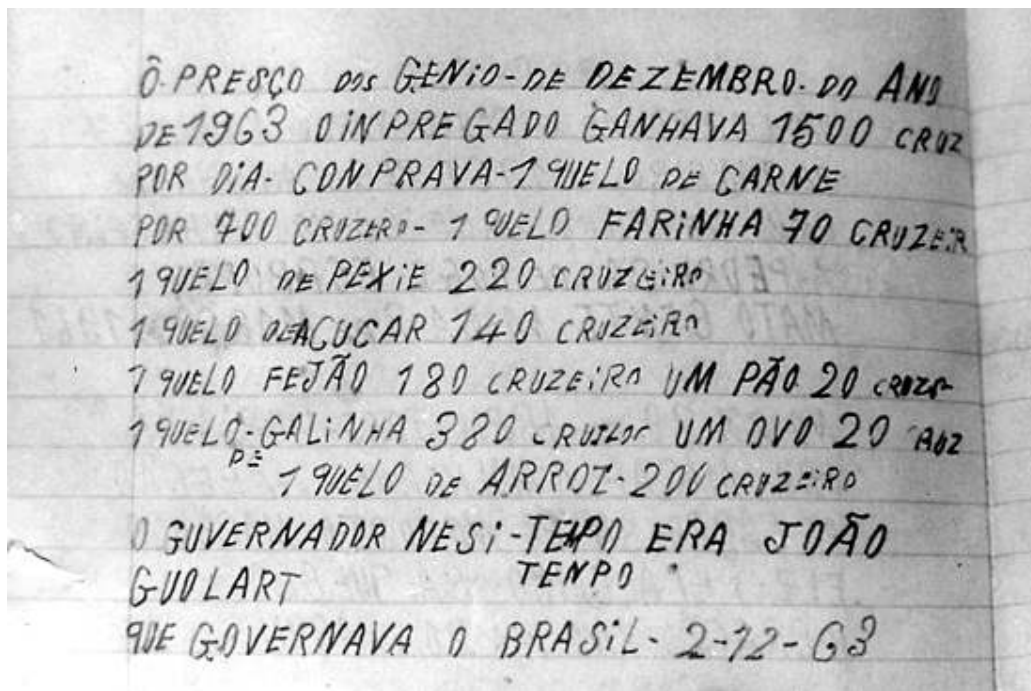 Ô. PRESÇO DOS GENiO-DE DEZEMBRO. DO ANO
DE 1963 O iNPREGADO GANHAVA 1500 CRUZ
POR DiA- CONPRAVA-1 QUELO DE CARNE
POR 700 CRUZERO- 1 QUELO FARiNHA 70 CRUZEIR
1 QUELO DE PEXiE 220 CRUZEiRO
1 QUELO DEAÇUCAR 140 CRUZEiRO
1 QUELO FEJÃO 180 CRUZEiRO UM PÃO 20
1 QUELO-GALiNHA 380 UM OVO 20
DE
1 QUELO DE ARROZ-200 CRUZEiRO
O GUVERNADOR NESi-TEMPO ERA JOÃO
GUOLART TENPO
QUE GOVERNAVA O BRASiL- 2-12-63